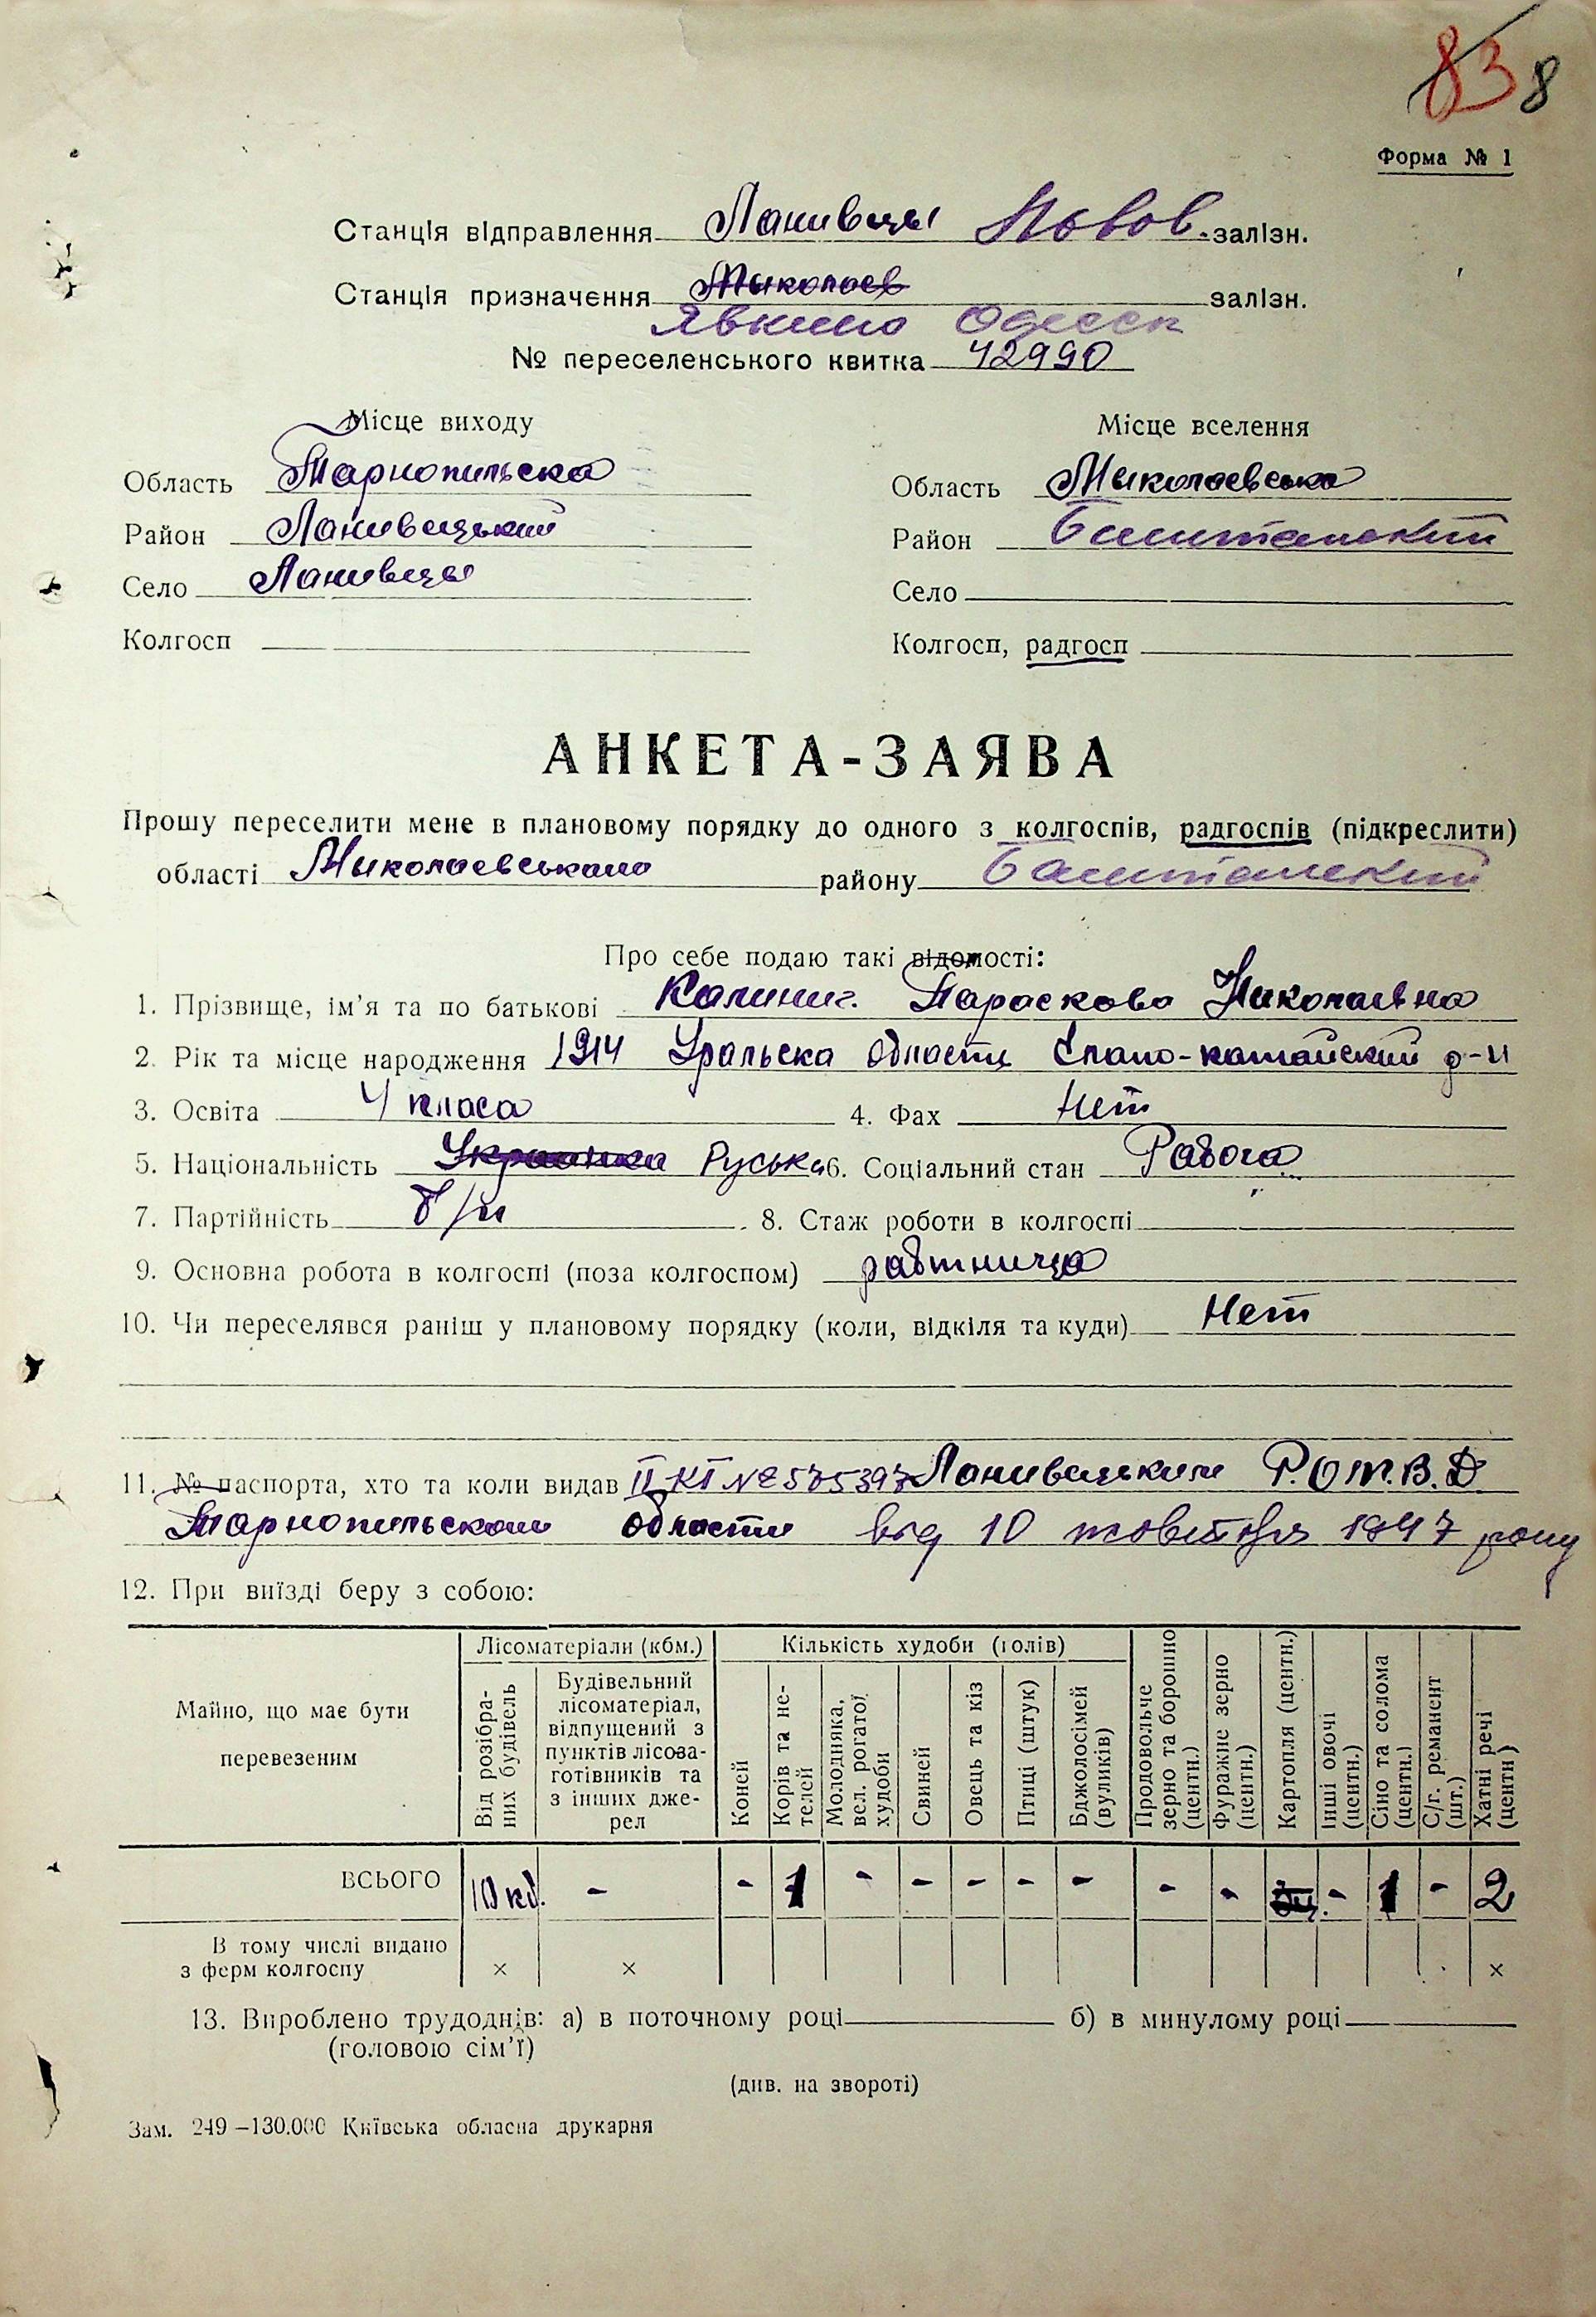 83 8
Форма № 1
Станція відправлення Лановцы Львов. залізн.
Станція призначення Мыколаев залізн.
Явкино Одесск
№ переселенського квитка 42990
Місце виходу
Місце вселення
Область Тарнопильска
Область Мыколаевська
Район Лановецький
Район Баштанский
Село Лановцы
Село
Колгосп
Колгосп, радгосп
АНКЕТА-ЗАЯВА
Прошу переселити мене в плановому порядку до одного з колгоспів, радгоспів (підкреслити)
області району Баштанский
Про себе подаю такі відомості:
1. Прізвище, ім'я та по батькові Параскова Николаевна
2. Рік та місце народження 1914 Уральска области р-н
3. Освіта 4 класа 4. Фах Нет
5. Національність Украинка Руська 6. Соціальний стан
7. Партійність б/п 8. Стаж роботи в колгоспі
9. Основна робота в колгоспі (поза колгоспом)
10. Чи переселявся раніш у плановому порядку (коли, відкіля та куди) Нет
11. № паспорта, хто та коли видав II КТ № 575397 Р.О.М.В.Д
області від 10 жовтня 1947 року
12. При виїзді беру з собою:
Майно, що має бути перевезеним
Лісоматеріали (кбм.)
Кількість худоби (голів)
Від розібраних будівель
Будівельний лісоматеріал, відпущений з пунктів лісозаготівників та з інших джерел
Коней
Корів та нетелей
Молодняка, вел. рогатої худоби
Свиней
Овець та кіз
Птиці (штук)
Бджолосімей (вуликів)
Продовольче зерно та борошно (центн.)
Фуражне зерно (центн.)
Картопля (центн.)
Інші овочі (центн.)
Сіно та солома (центн.)
С/г. реманент (шт.)
Хатні речі (центн)
ВСЬОГО 10 кб. - - 1 - - - - - - - - 1 - 2
В тому числі видано з ферм колгоспу × × ×
13. Вироблено трудоднів: а) в поточному році б) в минулому році
(головою сім'ї)
(див. на звороті)
Зам. 249—130.000 Київська обласна друкарня